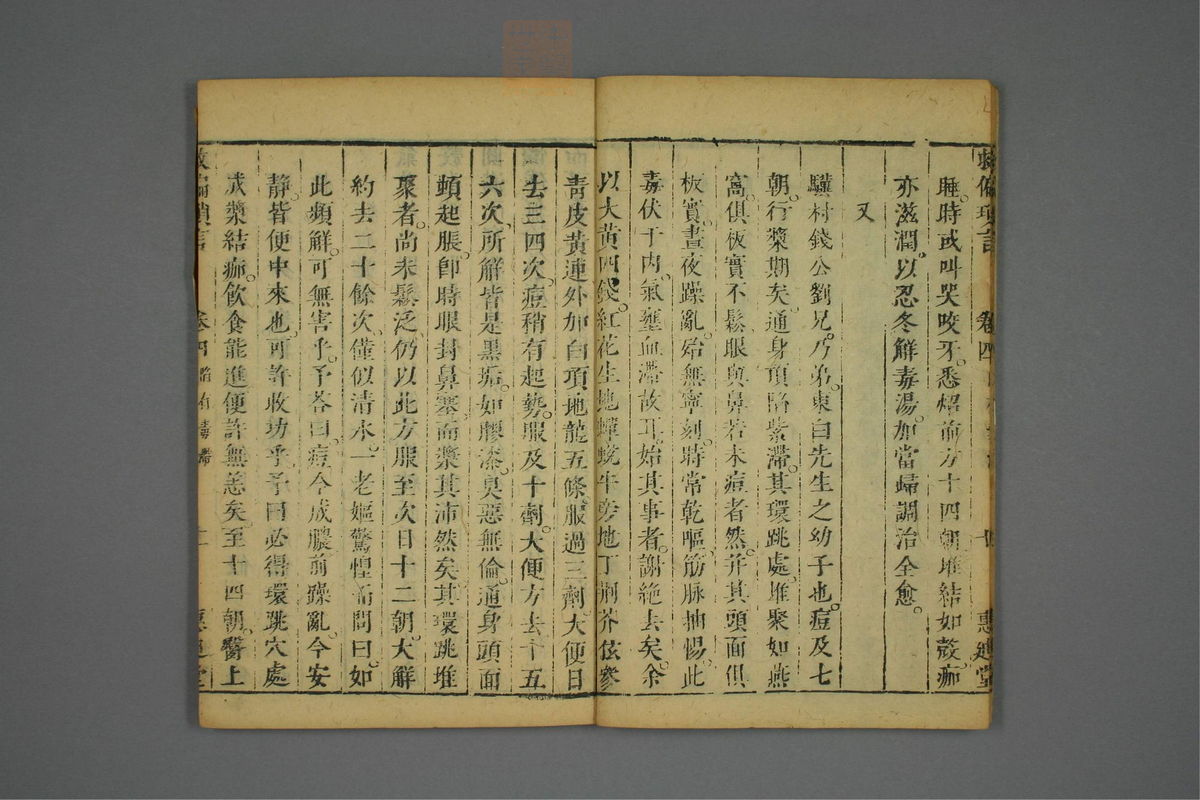 救偏瑣言 卷四 惠迪堂
睡。時或叫哭咬牙。悉焰前方十四朝堆結如殼。痂
亦滋潤。以忍冬解毒湯。加當歸調治全愈。
又
驥村錢公劉兄。乃弟。東白先生之幼子也。痘及七
朝。行漿期矣。通身頂陷紫滯。其環跳處。堆聚如燕
窩。俱板實不鬆。眼與鼻若未痘者然。并其頭面俱
板實。晝夜躁亂。殆無寧刻。時常乾嘔。筋脉抽惕。此
毒伏于內。氣壅血滯故耳。始其事者。謝絕去矣。余
以大黃四錢。紅花生地蟬蛻牛蒡地丁荊芥伭參
青皮黃連外加白項地龍五條。服過三劑。大便日
去三四次。痘稍有起勢。服及十劑。大便方去十五
六次。所解皆是黑垢。如膠漆。臭惡無倫。通身頭面
頓起脹。卽時眼封鼻塞。而漿其沛然矣。其環跳堆
聚者。尚未鬆泛。仍以此方服至次日十二朝。大解
約去二十餘次。僅似清水。一老嫗驚惶而問曰。如
此頻解。可無害乎。予答曰。痘今成膿。前躁亂。今安
靜。皆便中來也。可許收功乎。予曰。必得環跳穴處
成漿結痂。飲食能進。便許無恙矣。至十四朝。醫上
救偏瑣言 卷四 惠迪堂